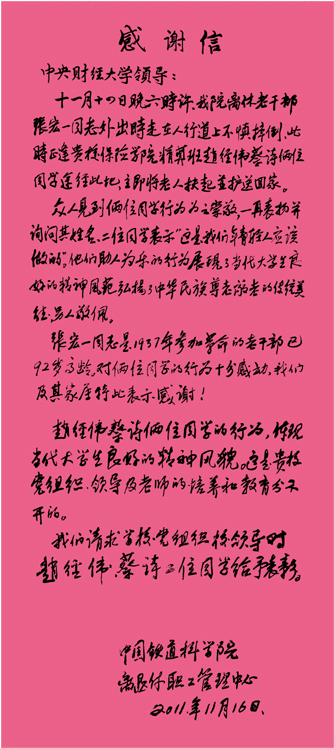 感谢信
中央财经大学领导：
十一月十四日晚六時许，我院离休老干部
张宏一同志外出時走在人行道上不慎摔倒，此
時正逢贵校保险学院精算班赵经伟蔡诗俩位
同学途经此地，立即将老人扶起並护送回家。
众人见到俩位同学行为为之崇敬，一再表扬并
询问其姓名、二位同学表示"这是我们年轻人应该
做的"。他们助人为乐的行为展现了当代大学生良
好的精神風范，弘扬了中华民族尊老敬老的传统美
德，另人敬佩。
张宏一同志是1937年参加革命的老干部已
92岁高龄，对俩位同学的行为十分感动，我们
及其家属特此表示感谢！
赵经伟蔡诗俩位同学的行为，体现
当代大学生良好的精神风貌。这是贵校
党组织、领导及老师的培养和教育分不
开的。
我们请求学校党组织校领导对
赵经伟、蔡诗二位同学给予表彰。
中国铁道科学院
离退休职工管理中心
2011.年11月16日.